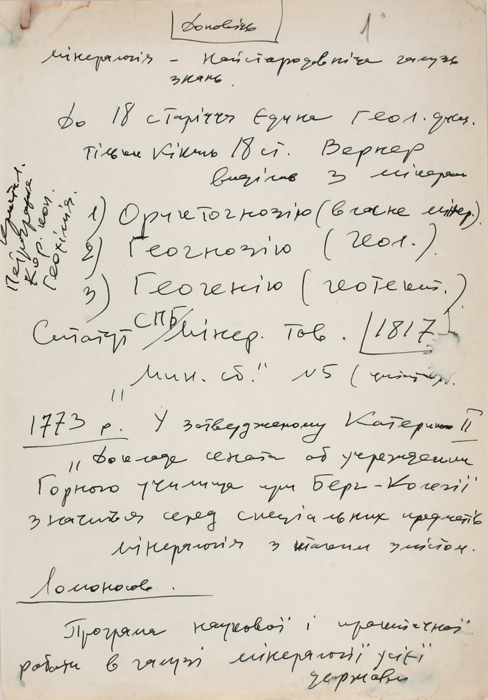 Доповідь
1
Мінералогія – найстародавніша галузь
знань.
До 18 сторіччя Єдина Геол. дисц.
Тільки кінець 18 ст. Вернер
виділив з мінерал
1) Орыктогнозію (власне мінер.)
2) Геогнозію (геол.).
3) Геогенію (геотект.)
Петрографія
Кор. іскоп.
Геохімія.
Статут СПБ Мінер. тов. 1817
"Мин. сб." №5
1773 р. У затвердженому Катериною II
"Докладе сената об учреждении
Горного училища при Берг-Колегії
значиться серед спеціальних предметів
мінералогія з таким змістом.
Ломоносов.
Програма наукової і практичної
работи в галузі мінералогії усієї
держави